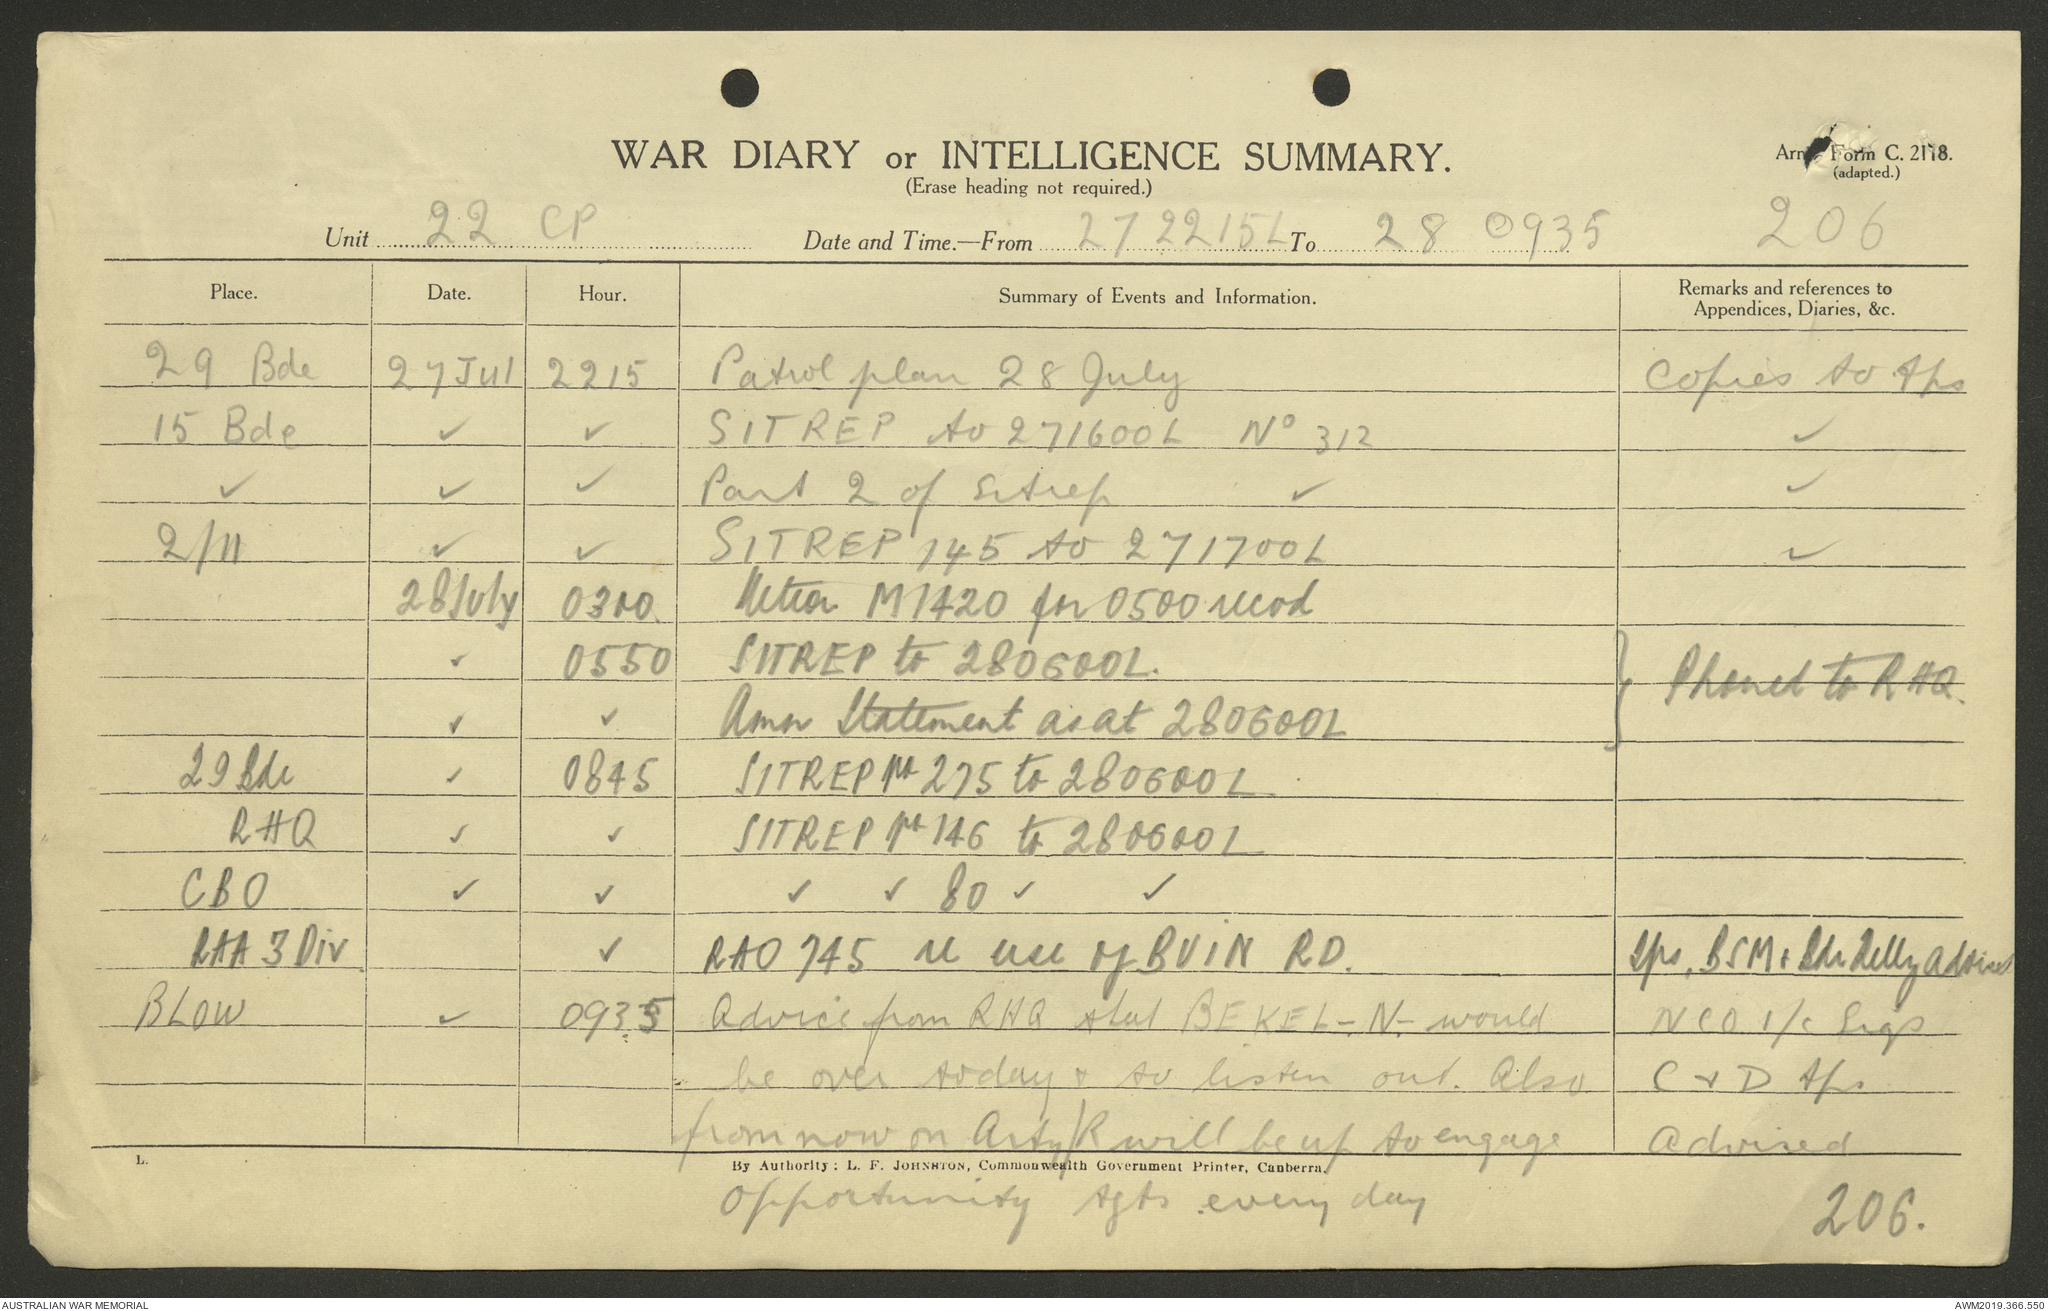 WAR DIARY or INTELLIGENCE SUMMARY.
(Erase heading not required.)
Army Form C. 2118.
(adapted.)
Unit 22 CP Date and Time.—From 27 2215L To 28 0935 206
Place. Date. Hour. Summary of Events and Information. Remarks and references to Appendices, Diaries, &c.
29 Bde 27 Jul 2215 Patrol plan 28 July Copies to tps
15 Bde ✓ ✓ SITREP to 271600L No 312 ✓
✓ ✓ ✓ Part 2 of Sitrep ✓ ✓
2/11 ✓ ✓ SITREP 145 to 271700L ✓
28 July 0300 Meteor M1420 for 0500 record
✓ 0550 SITREP to 280600L. } Phoned to RHQ.
✓ ✓ Amn Statement as at 280600L
29 Bde ✓ 0845 SITREP No 275 to 280600L
RHQ ✓ ✓ SITREP No 146 to 280600L
CBO ✓ ✓ ✓ ✓ 80 ✓ ✓
RAA 3 Div ✓ RAO 745 re use of BUIN RD. Tps, BSM & Bdr Kelly advised
BLOW ✓ 0935 Advice from RHQ that BEKEL-N- would NCO i/c Sigs
be over today & to listen out. Also C & D tps
from now on Arty/R will be up to engage advised
By Authority: L. F. JOHNSTON, Commonwealth Government Printer, Canberra.
L.
opportunity tgts every day
206.
AUSTRALIAN WAR MEMORIAL
AWM2019.366.550